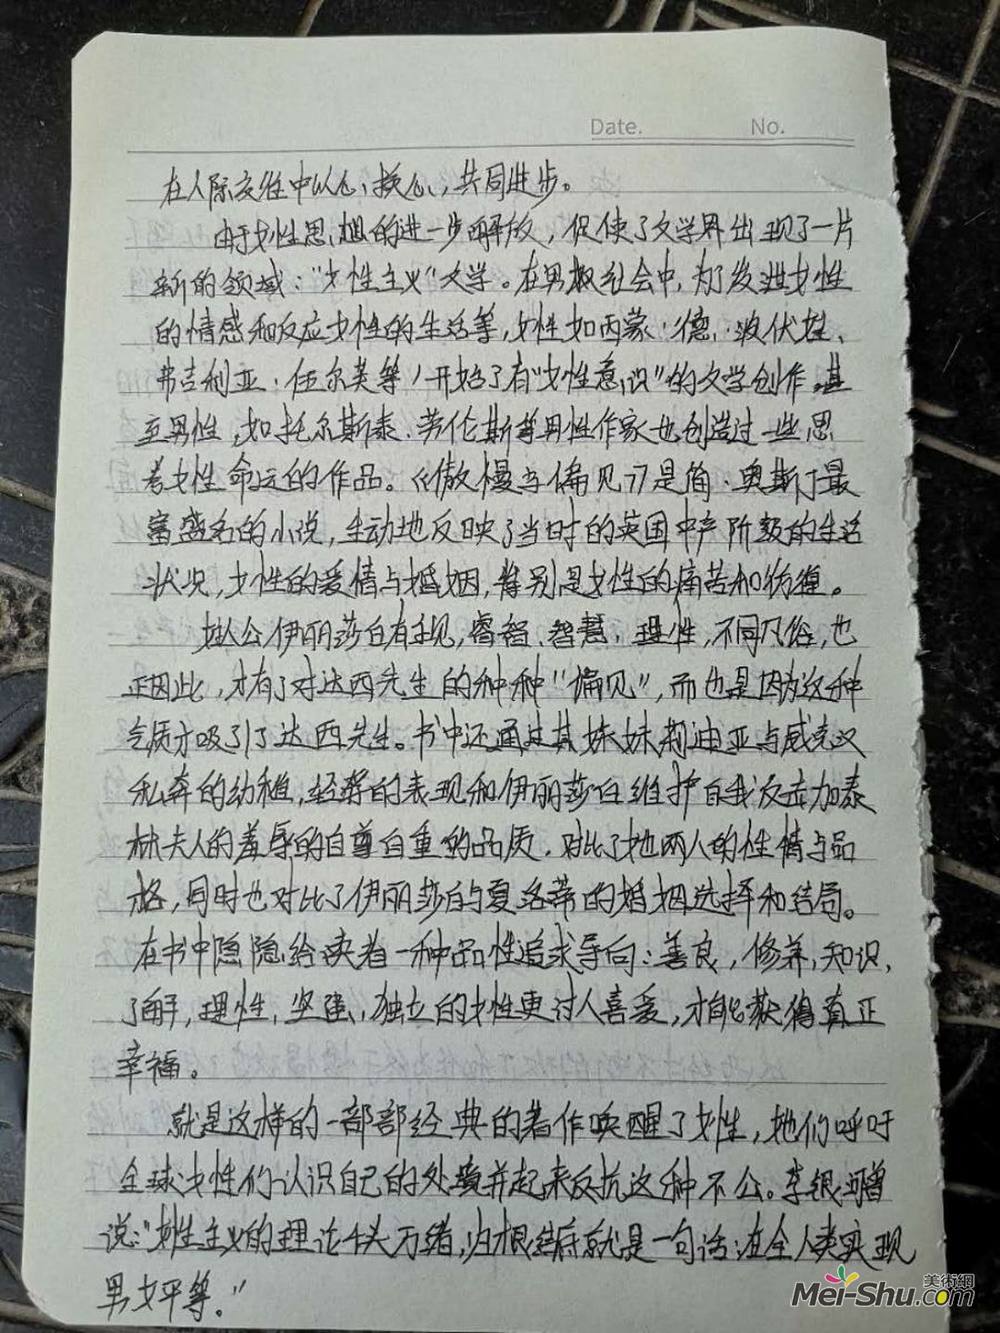 Date. No.
在人际交往中以心换心,共同进步。
由于女性思想的进一步解放,促使了文学界出现了一片
新的领域:"女性主义"文学。在男权社会中,为了发泄女性
的情感和反应女性的生活等,女性如西蒙·德·波伏娃、
弗吉利亚·伍尔芙等开始了有"女性意识"的文学创作。甚
至男性,如托尔斯泰、劳伦斯等男性作家也创造过一些思
考女性命运的作品。《傲慢与偏见》是简·奥斯丁最
富盛名的小说,生动地反映了当时的英国中产阶级的生活
状况,女性的爱情与婚姻,特别是女性的痛苦和彷徨。
女主人公伊丽莎白有主见,睿智、智慧,理性,不同凡俗,也
正因此,才有了对达西先生的种种"偏见",而也是因为这种
气质才吸引了达西先生。书中还通过其妹妹莉迪亚与威克汉
私奔的幼稚,轻浮的表现和伊丽莎白维护自我反击加泰
林夫人的羞辱的自尊自重的品质,对比了她两人的性情与品
格,同时也对比了伊丽莎白与夏洛蒂的婚姻选择和结局。
在书中隐隐给读者一种品性追求导向:善良,修养,知识,
了解,理性,坚强,独立的女性更讨人喜爱,才能获得真正
幸福。
就是这样的一部部经典的著作唤醒了女性,她们呼吁
全球女性们认识自己的处境并起来反抗这种不公。李银河曾
说:"女性主义的理论千头万绪,归根结底就是一句话:在全人类实现
男女平等。"
美術網
Mei-Shu.com